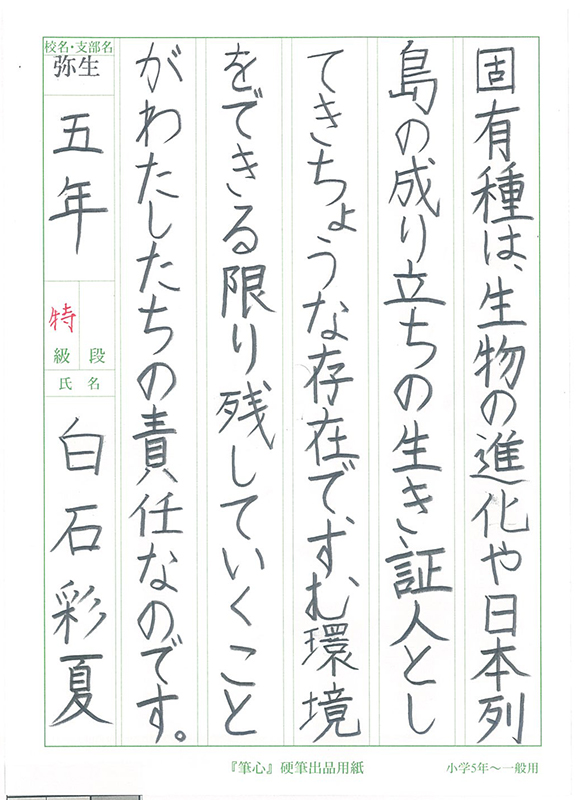 固有種は、生物の進化や日本列
島の成り立ちの生き証人とし
てきちょうな存在で、すむ環境
をできる限り残していくこと
がわたしたちの責任なのです。
校名・支部名
弥生
五年
特
級 段
氏 名
白石彩夏
『筆心』硬筆出品用紙
小学5年〜一般用